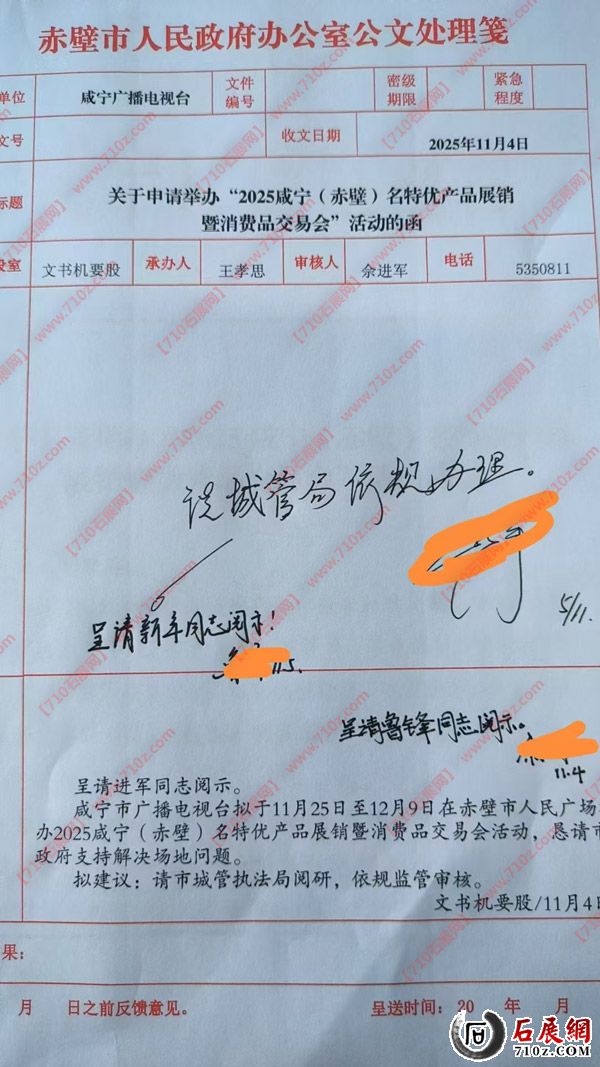 赤壁市人民政府办公室公文处理笺
单位 咸宁广播电视台 文件编号 密级期限 紧急程度
文号 收文日期 2025年11月4日
标题 关于申请举办“2025咸宁（赤壁）名特优产品展销
暨消费品交易会”活动的函
股室 文书机要股 承办人 王孝思 审核人 余进军 电话 5350811
城管局依规办理。
5/11.
呈请新年同志阅示！
11.5.
呈请鲁锋同志阅示。
11.4
呈请进军同志阅示。
咸宁市广播电视台拟于11月25日至12月9日在赤壁市人民广场
办2025咸宁（赤壁）名特优产品展销暨消费品交易会活动，恳请市
政府支持解决场地问题。
拟建议：请市城管执法局阅研，依规监管审核。
文书机要股/11月4日
果：
月 日之前反馈意见。 呈送时间：20 年 月
【710石展网】www.710z.com
石展網
710z.com